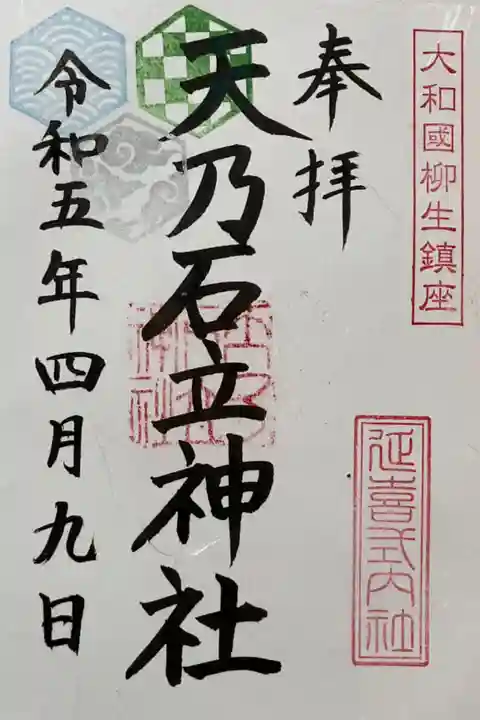 大和國柳生鎮座
延喜式内社
奉拝
天乃石立神社
令和五年四月九日